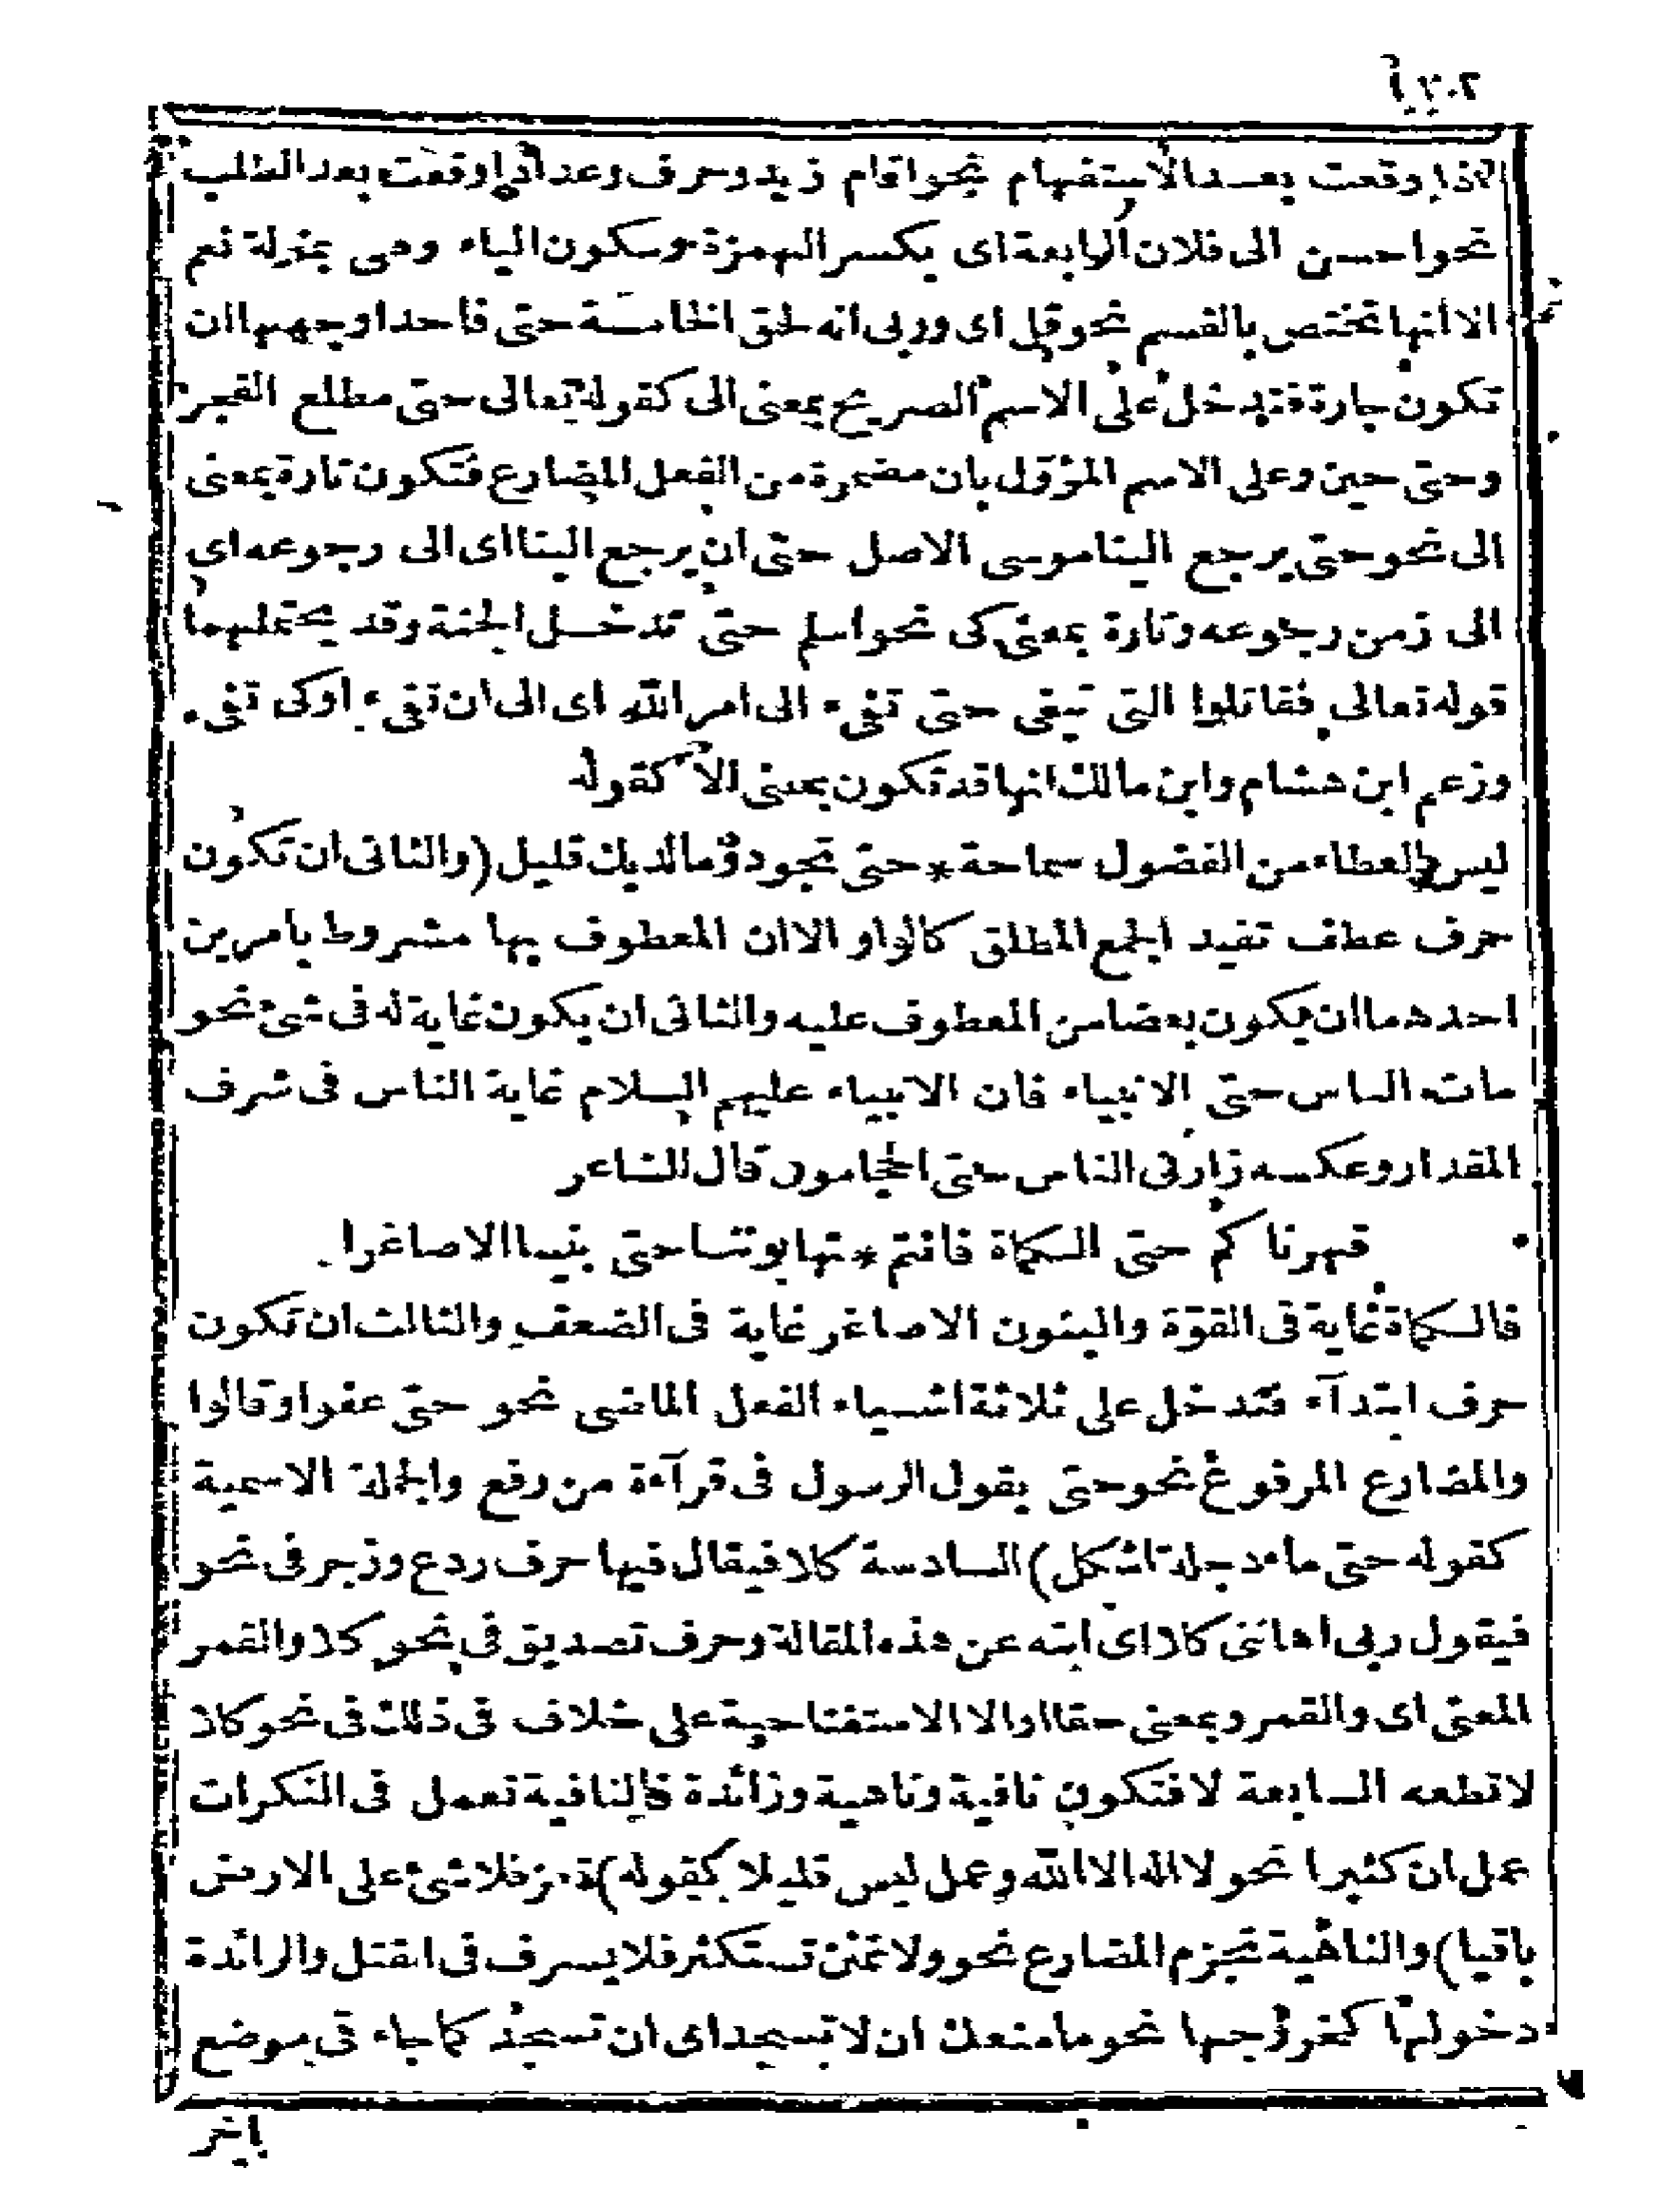 ٣٠٢
اذا وقعت بعد الاستفهام نحو اقام زيد وحرف وعد اذا وقعت بعد الطلب
نحو احسن الى فلان الرابعة اى بكسر الهمزة وسكون الياء وهى بمنزلة نعم
الا انها تختص بالقسم نحو قل اى وربى انه لحق الخامسة حتى فاحد اوجهها ان
تكون جارة فتدخل على الاسم الصريح بمعنى الى كقوله تعالى حتى مطلع الفجر
وحتى حين وعلى الاسم المؤول بان مضمرة من الفعل المضارع فتكون تارة بمعنى
الى نحو حتى يرجع الينا موسى الاصل حتى ان يرجع الينا اى الى رجوعه اى
الى زمن رجوعه وتارة بمعنى كى نحو اسلم حتى تدخل الجنة وقد يحتملهما
قوله تعالى فقاتلوا التى تبغى حتى تفىء الى امر الله اى الى ان تفىء اوكى تفىء
وزعم ابن هشام وابن مالك انها قد تكون بمعنى الا كقوله
ليس العطاء من الفضول سماحة * حتى تجود وما لديك قليل (والثانى ان تكون
حرف عطف تفيد الجمع المطلق كالواو الا ان المعطوف بها مشروط بامرين
احدهما ان يكون بعضا من المعطوف عليه والثانى ان يكون غاية له فى شئ نحو
مات الناس حتى الانبياء فان الانبياء عليهم السلام غاية الناس فى شرف
المقدار وعكسه زارنى الناس حتى الحجامون قال الشاعر
قهرناكم حتى الكماة فانتم * تهابوننا حتى بنينا الاصاغرا
فالكماة غاية فى القوّة والبنون الاصاغر غاية فى الضعف والثالث ان تكون
حرف ابتدآء فتدخل على ثلاثة اشياء الفعل الماضى نحو حتى عفوا وقالوا
والمضارع المرفوع نحو حتى يقول الرسول فى قرآءة من رفع والجملة الاسمية
كقوله حتى ماء دجلة اشكل) السادسة كلا فيقال فيها حرف ردع وزجر فى نحو
فيقول ربى اهاننى كلا اى انته عن هذه المقالة وحرف تصديق فى نحو كلا والقمر
المعنى اى والقمر وبمعنى حقا اوالا الاستفتاحية على خلاف فى ذلك فى نحو كلا
لا تطعه السابعة لا فتكون نافية وناهية وزائدة فالنافية تعمل فى النكرات
عمل ان كثيرا نحو لا اله الا الله وعمل ليس قليلا كقوله) تعز فلا شئ على الارض
باقيا) والناهية تجزم المضارع نحو ولا تمنن تستكثر فلا يسرف فى القتل والزائدة
دخولها كخروجها نحو ما منعك ان لا تسجد اى ان تسجد كما جاء فى موضع
اخر